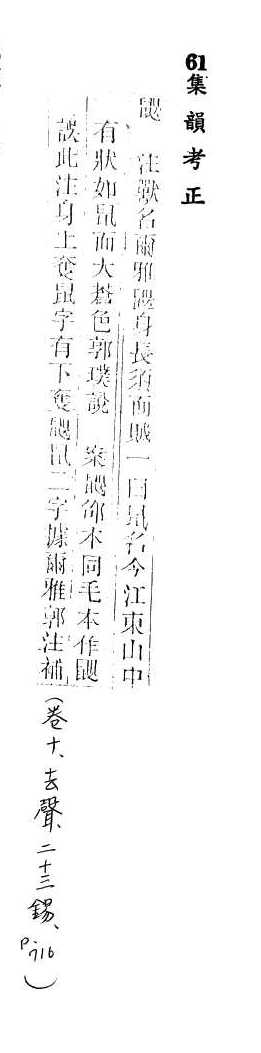 61集韻考正
鼳 注獸名爾雅鼳身長須而賊一曰鼠名今江東山中
有狀如鼠而大蒼色郭璞說 案鼳毛本作
誤此注身上奪鼠字有下奪鼳鼠二字據爾雅郭注補
(卷十、去聲、二十三錫、
P.716)